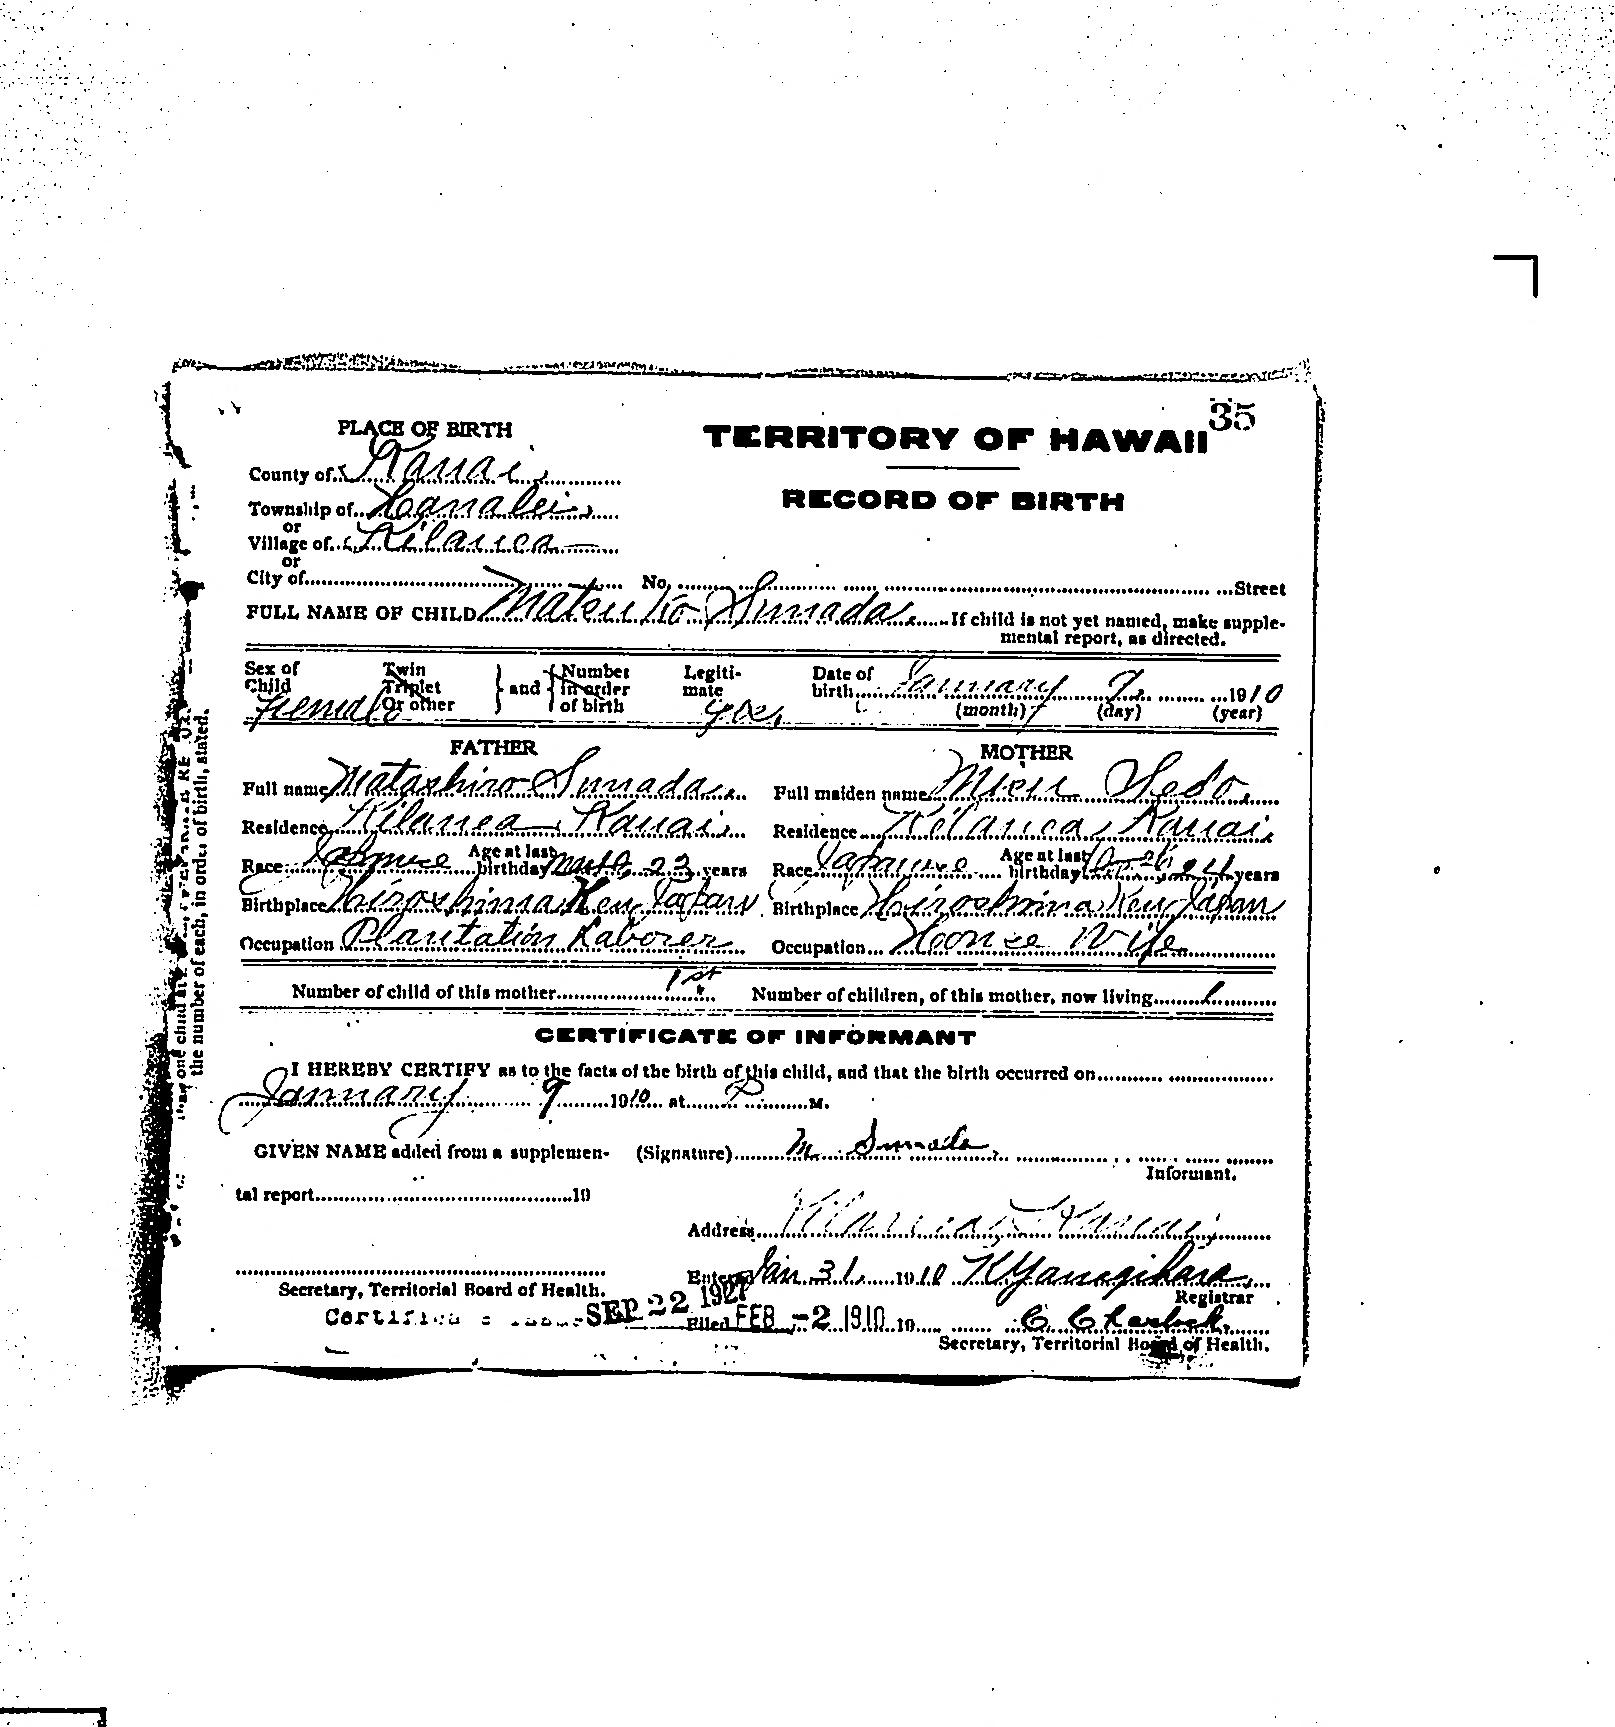 35
PLACE OF BIRTH
TERRITORY OF HAWAII
County of Kauai
RECORD OF BIRTH
Township of Hanalei
or
Village of Kilauea
or
City of No. Street
FULL NAME OF CHILD Matsuko Sumada. If child is not yet named, make supple-
mental report, as directed.
Sex of Child Female Twin Triplet Or other and Number in order of birth Legiti-mate yes. Date of birth January 9, 1910
(month) (day) (year)
FATHER MOTHER
Full name Matashiro Sumada. Full maiden name Misu Sedo.
Residence Kilauea, Kauai. Residence Kilauea, Kauai.
Race Japanese Age at last birthday 23 years Race Japanese Age at last birthday 24 years
Birthplace Hiroshima Ken Japan Birthplace Hiroshima Ken Japan
Occupation Plantation Laborer Occupation House Wife
Number of child of this mother 1st. Number of children, of this mother, now living 1
CERTIFICATE OF INFORMANT
I HEREBY CERTIFY as to the facts of the birth of this child, and that the birth occurred on
January 9 1910 at P. M.
GIVEN NAME added from a supplemen- (Signature) M. Sumada.
Informant.
tal report 19
Address Kilauea, Kauai,
Entered Jan 31, 1910 K Yanagihara
Secretary, Territorial Board of Health. Registrar
SEP 22 1927 Filed FEB -2 1910 19
Secretary, Territorial Board of Health.
one child at
the number of each, in order of birth, stated.